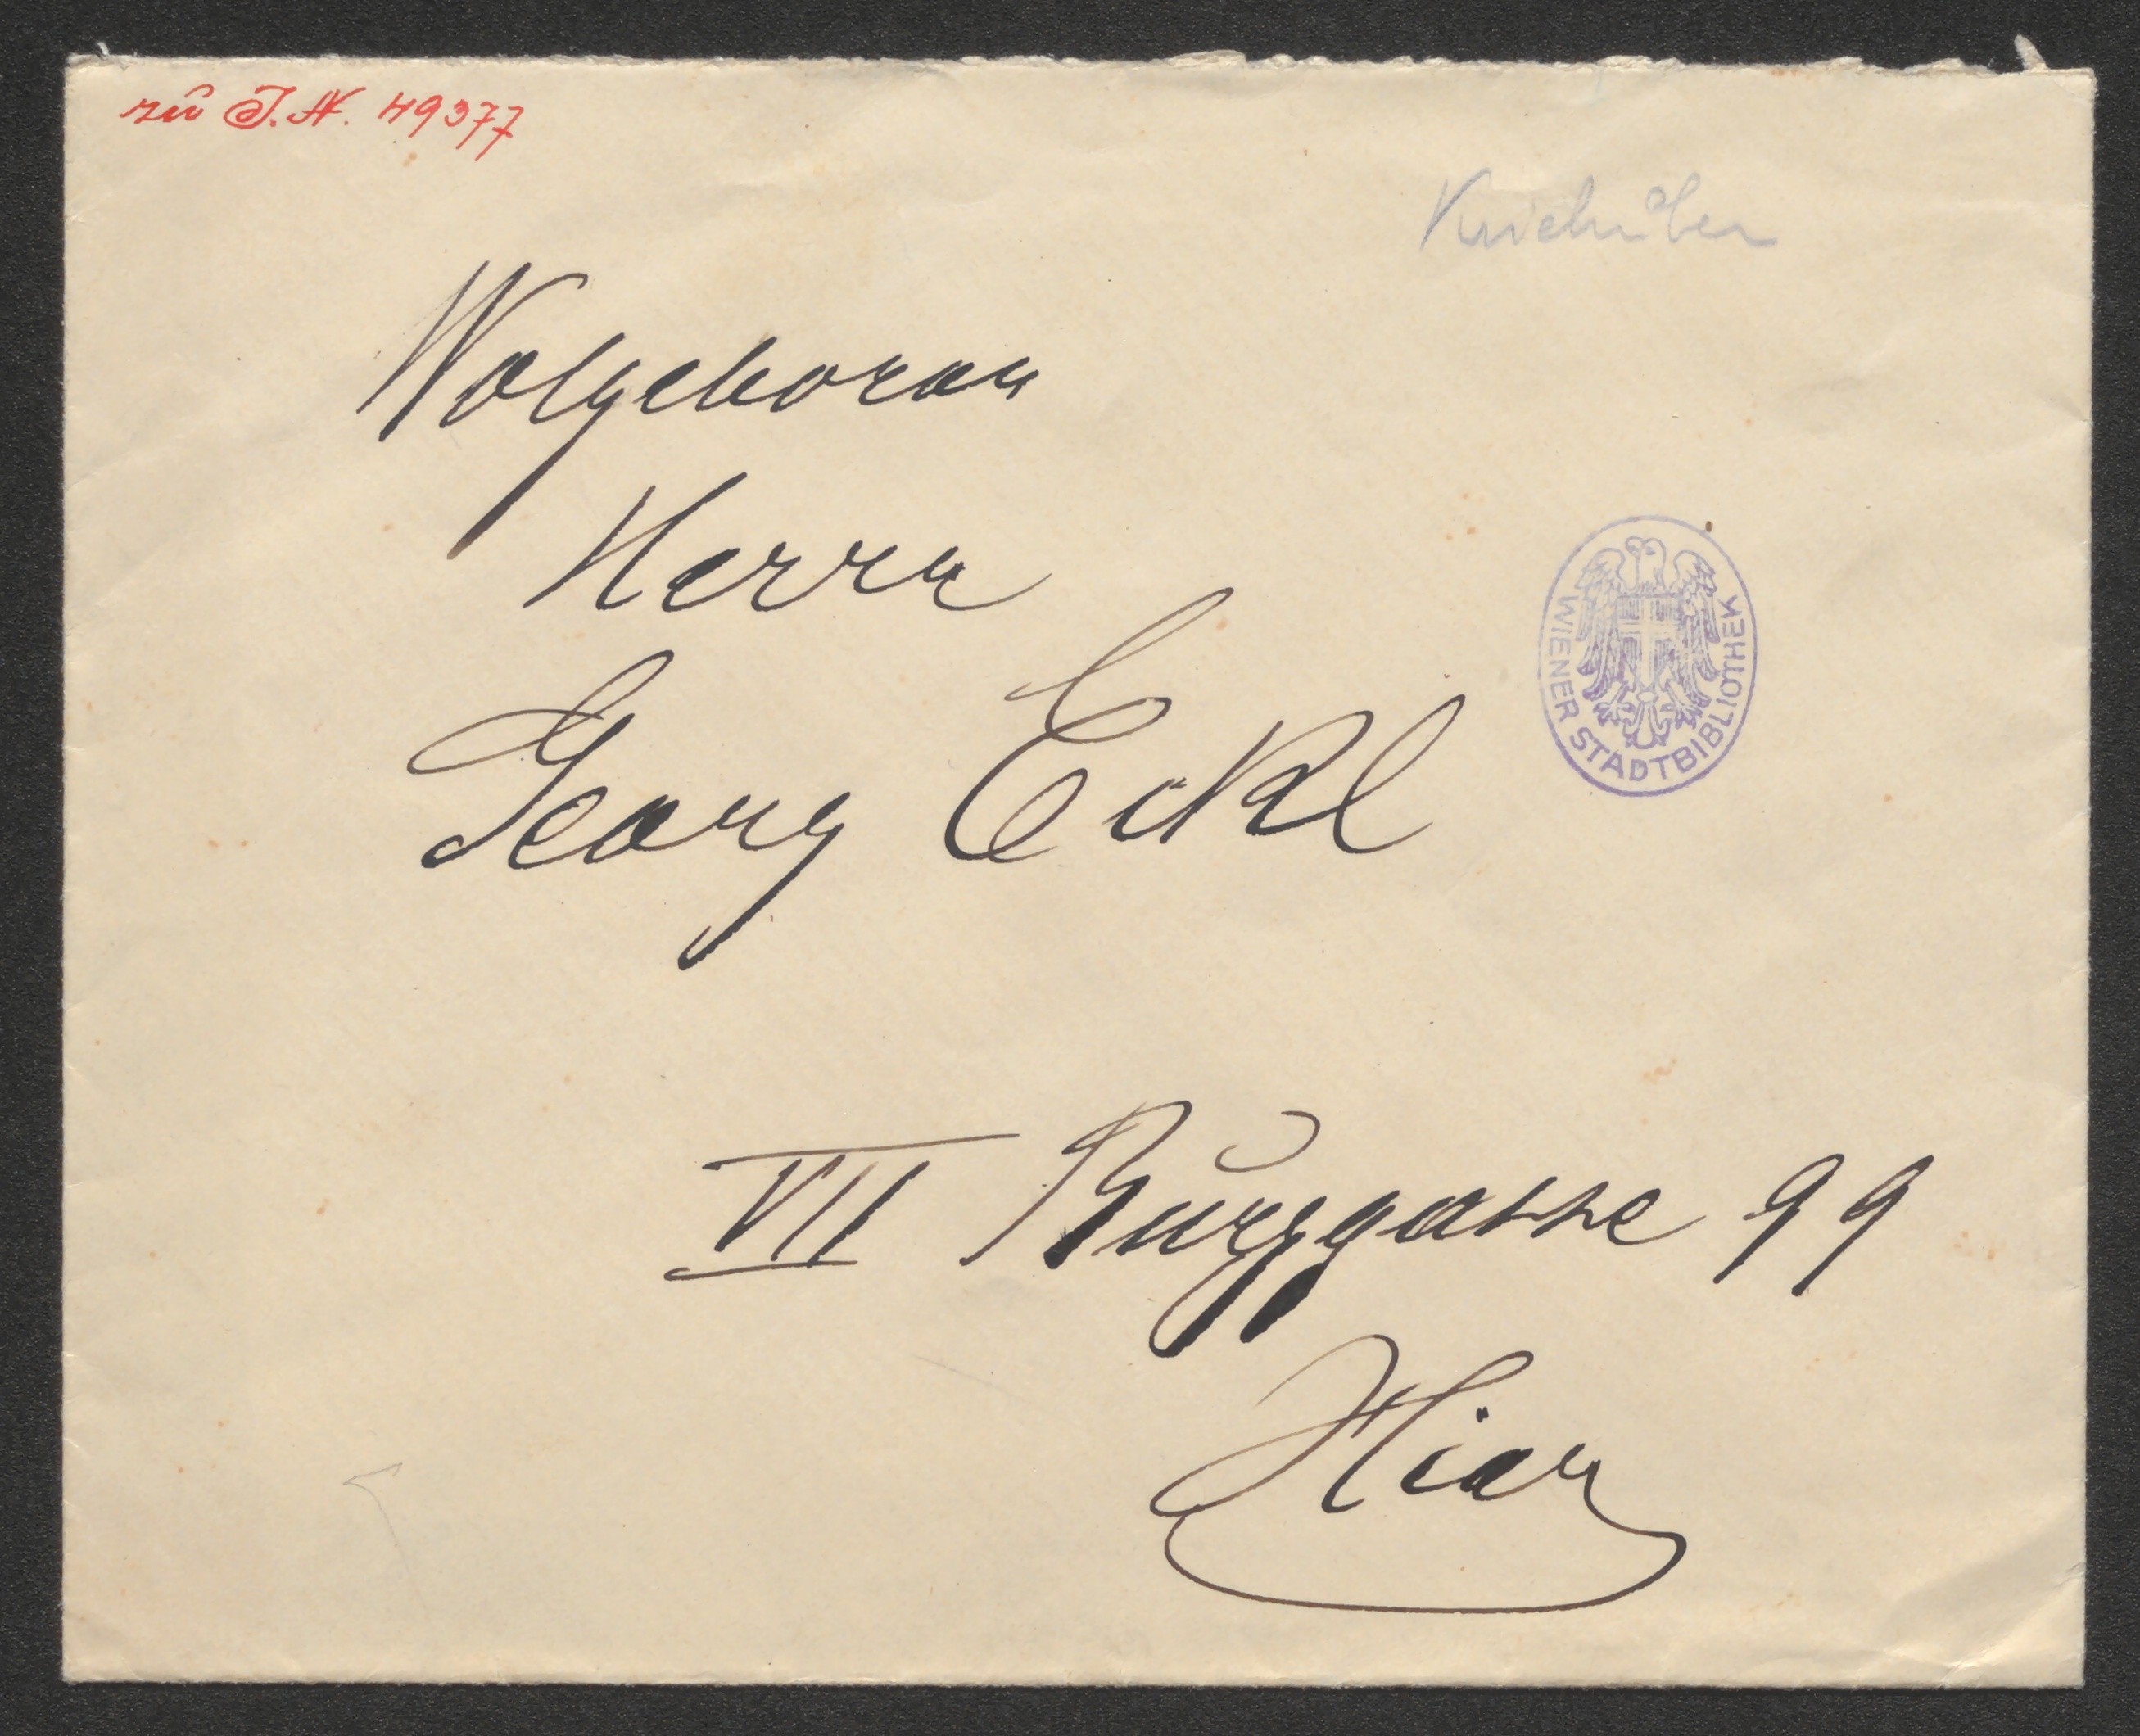 zu I.N. 49377
Kriehuber
Wolgeboren
Herrn
Georg Eckl
WIENER STADTBIBLIOTHEK
VII Burggasse 99
Hier